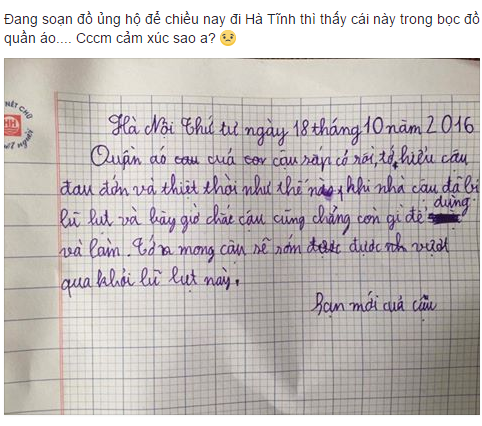 Đang soạn đồ ủng hộ để chiều nay đi Hà Tĩnh thì thấy cái này trong bọc đồ
quần áo.... Cccm cảm xúc sao ạ? 😟
NÉT CHỮ
NẾT NGƯỜI
Hà Nội Thứ tư ngày 18 tháng 10 năm 2016
Quần áo cuả cậu sắp có rồi, tớ hiểu cậu
đau đớn và thiệt thời như thế nào, khi nhà cậu đã bị
lũ lụt và bây giờ chắc cậu cũng chẳng còn gì để dựng
và làm. Tớ mong cậu sẽ sớm được vượt
qua khỏi lũ lụt này.
Bạn mới cuả cậu